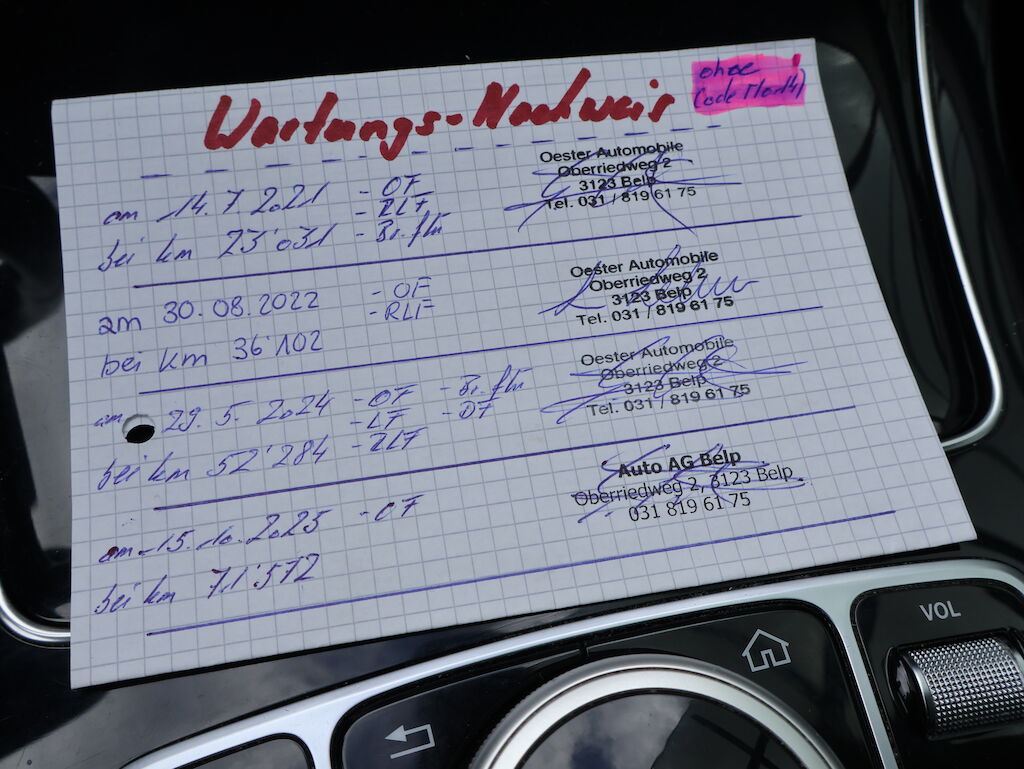 Wartungs-Nachweis
ohne
Code
am 14.7.2021 - OF
- RLF
bei km 23'031 - Br.flü
Oester Automobile
Oberriedweg 2
3123 Belp
Tel. 031 / 819 61 75
am 30.08.2022 - OF
- RLF
bei km 36'102
Oester Automobile
Oberriedweg 2
3123 Belp
Tel. 031 / 819 61 75
am 29.5.2024 - OF - Br.flü
- LF - DF
bei km 52'284 - RLF
Oester Automobile
Oberriedweg 2
3123 Belp
Tel. 031 / 819 61 75
am 15.10.2025 - OF
bei km 71'572
Auto AG Belp
Oberriedweg 2, 3123 Belp
031 819 61 75
VOL